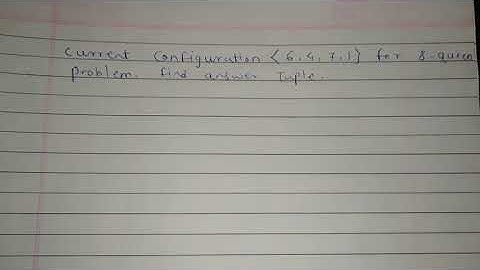 Current Configuration {6,4,7,1} for 8-queen
problem. find answer Tuple.